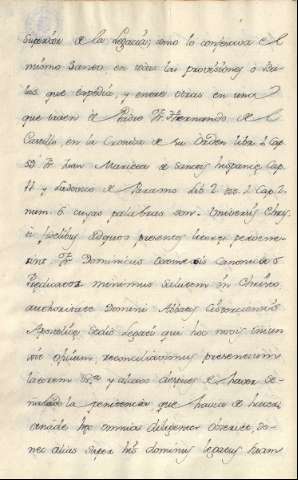 Superior de la Legacia; como lo confessava el
mismo Santo en todas las provissiones ò Bu-
las que expedia, y entre otras en una
que traen el Padre Fr. Hernando de el
Castillo en la Cronica de su Orden liba. 1. Cap.
Fr. Juan Marieta de Sanctis hispaniæ Cap.
y Ludovico de Paramo lib. 2. tit. 1. Cap. 2.
num. 6 cuyas palabras son. Universis Chris
ti fidelibus ad quos presentes literæ pervene-
rint Fr. Dominicus Oxomensis Canonicus
Prædicator minimus salutem in Christo.
authoritate Domini Abbatis Cisterciensis
Apostolicæ Sedis Legati qui hoc nobis iniun
xit officium reconciliavimus presentium
latorem &ª. y abaxo despues de haver se-
ñalado la penitencia que havia de hacer,
añade hæc omnia diligenter observet, do-
nec alias super his dominus legatus suam